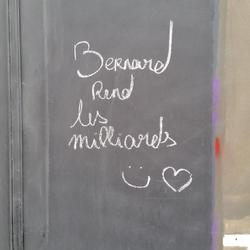 Bernard
Rend
les
milliards